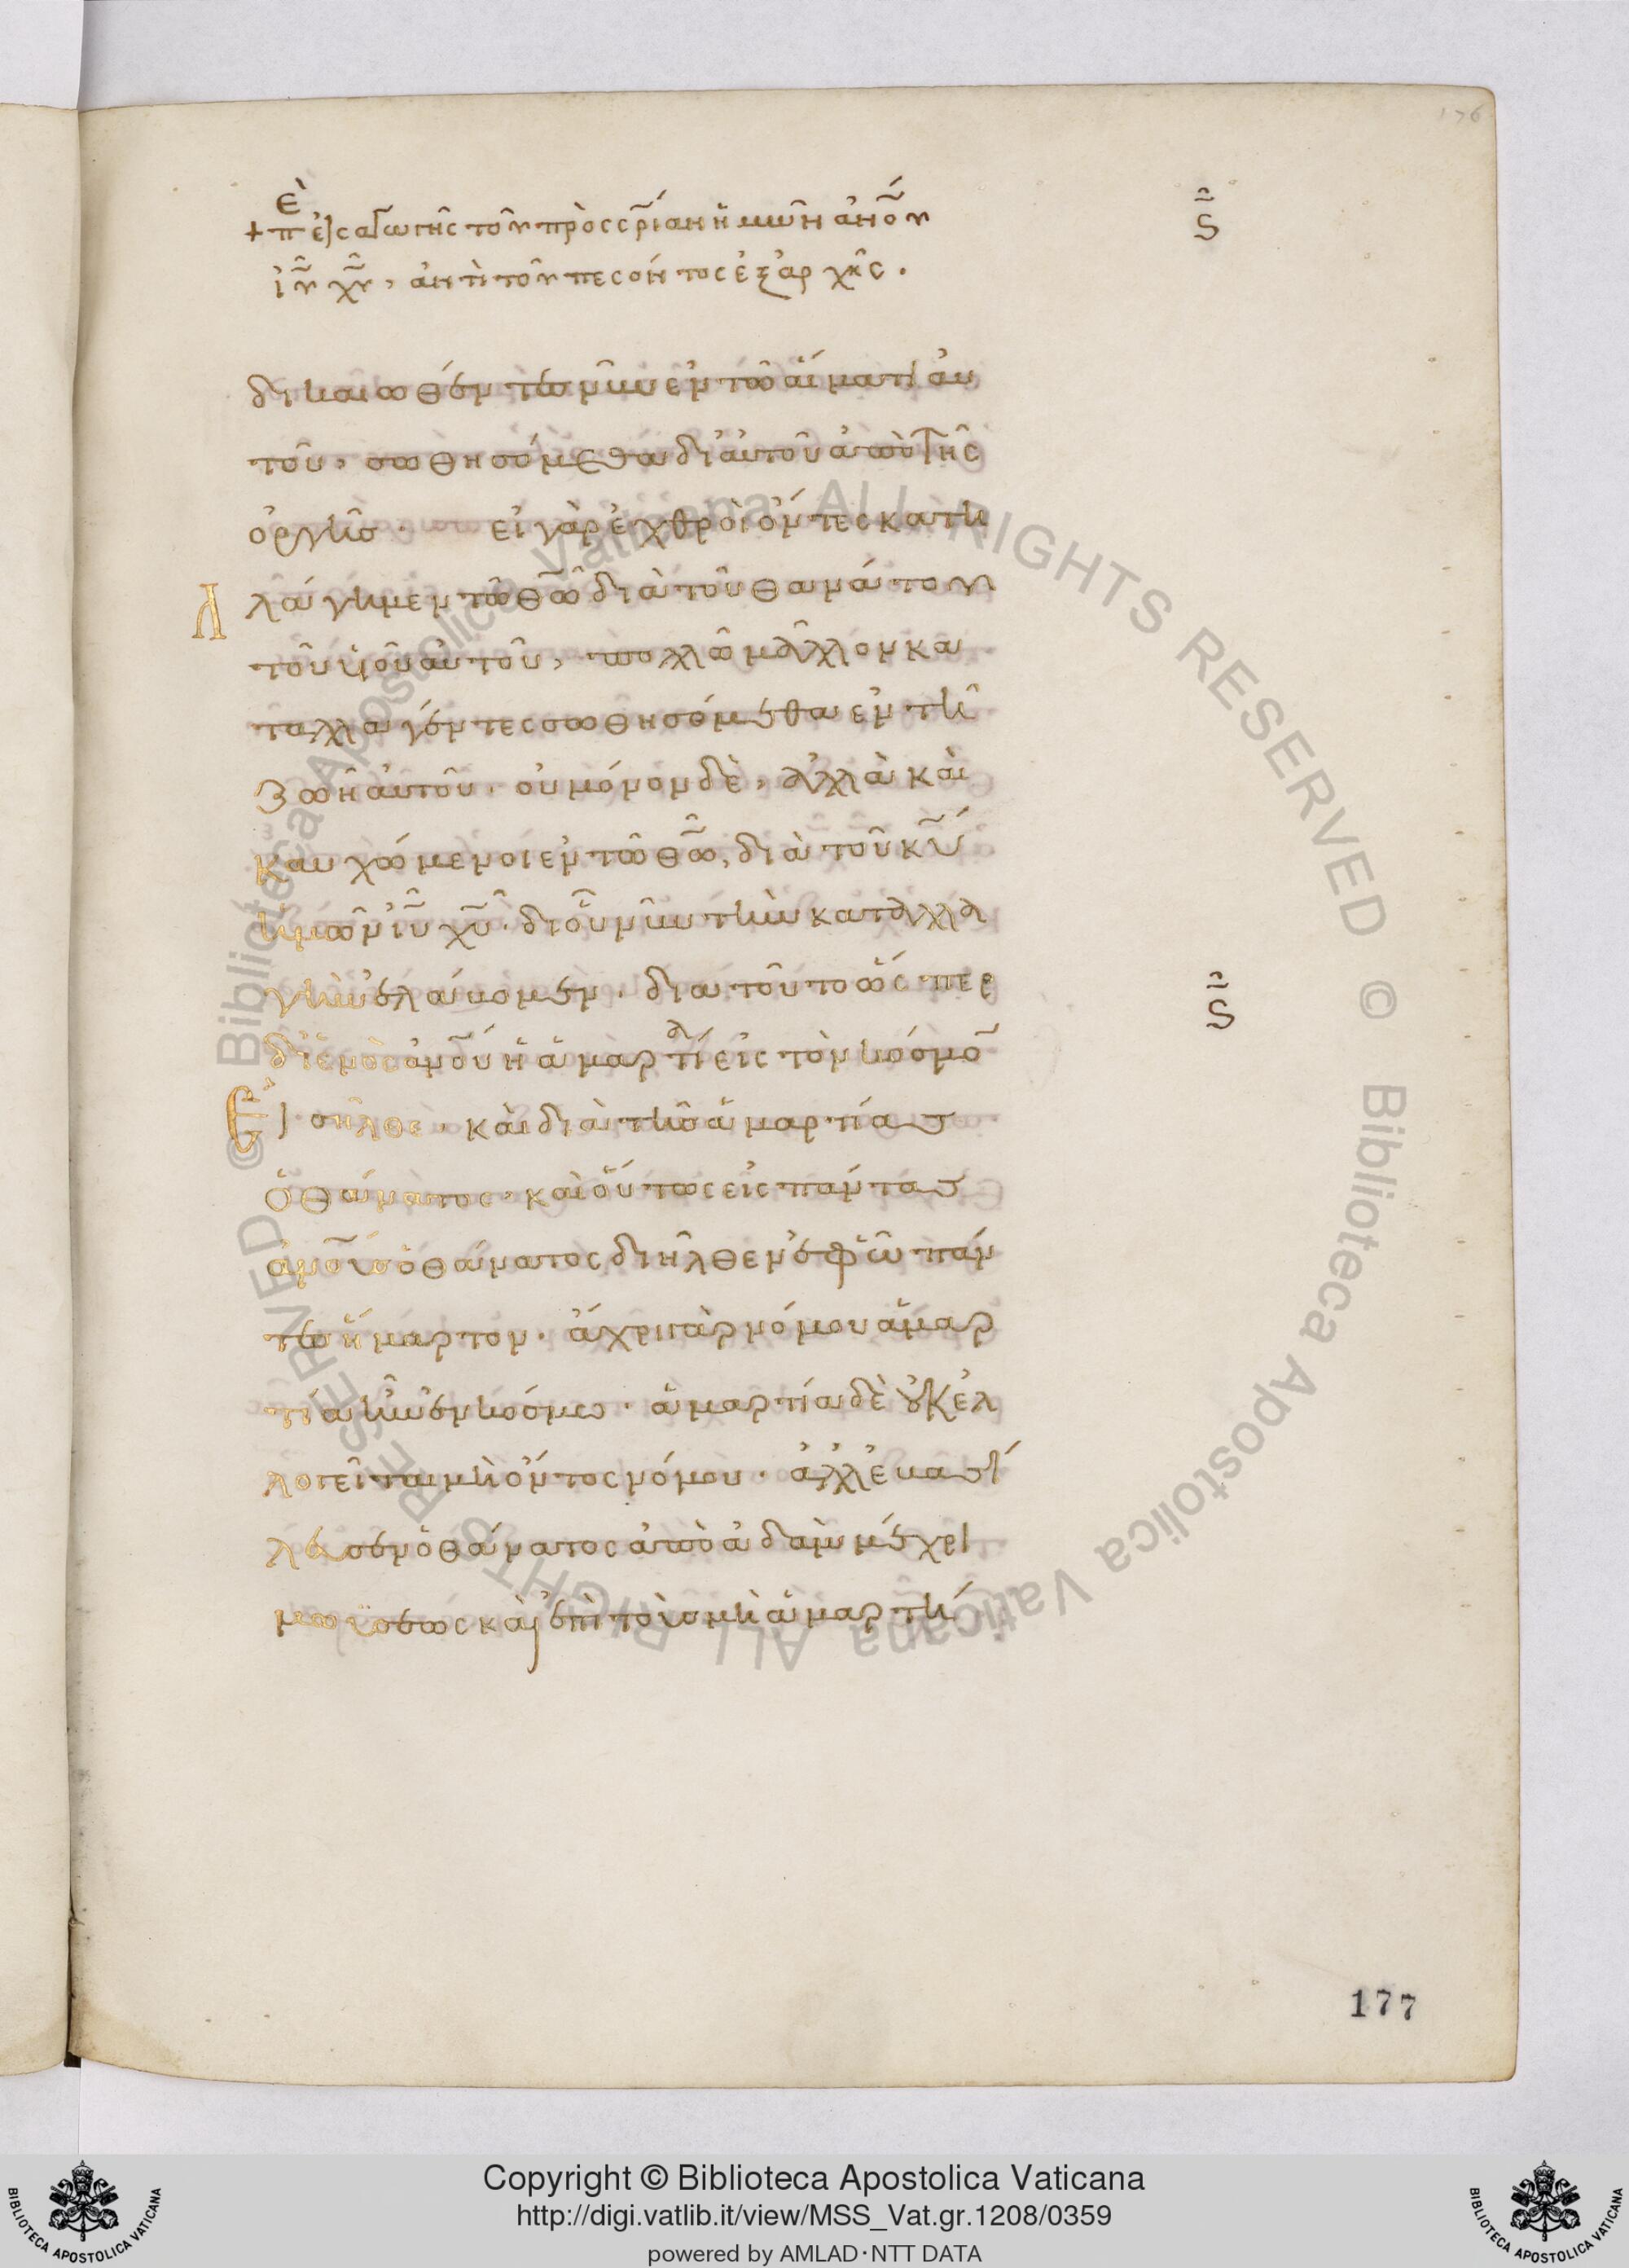 176
Ε
+ π ἐισαγωγῆς τοῦ πρὸς σρίαν ἡμῶν ἀνου
ἰυ χυ, ἀντὶ τοῦ πεσόντος ἐξ ἀρχῆς.
ϛ
δικαιωθέντες νῦν ἐν τῶ αἵματι αυ
τοῦ, σωθησόμεθα δι αὐτοῦ ἀπὸ τῆς
ὀργῆς. εἰ γὰρ ἐχθροὶ ὄντες κατη
λλάγημεν τῶ θω διὰ τοῦ θανάτου
τοῦ υἱοῦ αὐτοῦ, πολλῶ μᾶλλον κα
ταλλαγέντες σωθησόμεθα ἐν τῆ
ζωῆ αὐτοῦ. οὐ μόνον δὲ, ἀλλὰ καὶ
καυχώμενοι ἐν τῶ θω, διὰ τοῦ κυ
ἡμῶν ἰυ χυ. δι οὗ νῦν τὴν καταλλα
γὴν ἐλάβομεν. δια τοῦτο ὥσπερ
ϛ
δι ἑνὸς ἀνου ἡ ἁμαρτία εἰς τὸν κόσμο
εἰσῆλθε. καὶ διὰ τῆς ἁμαρτίας
ὁ θάνατος. καὶ οὕτως εἰς πάντας
ἀνους ὁ θάνατος διῆλθεν ἐφ ὧ πάν
τες ἥμαρτον. ἄχρι γὰρ νόμου ἁμαρ
τία ἦν ἐν κόσμω. ἁμαρτία δὲ οὐκ ἐλ
λογεῖται μὴ ὄντος νόμου. ἀλλ ἐβασί
λευσεν ὁ θάνατος ἀπὸ ἀδὰμ μέχρι
μωϋσέως καὶ ἐπὶ τοὺς μὴ ἁμαρτή
177
© Biblioteca Apostolica Vaticana ALL RIGHTS RESERVED © Biblioteca Apostolica Vaticana ALL RIGHTS RESERVED
Copyright © Biblioteca Apostolica Vaticana
http://digi.vatlib.it/view/MSS_Vat.gr.1208/0359
powered by AMLAD·NTT DATA
BIBLIOTECA APOSTOLICA VATICANA
BIBLIOTECA APOSTOLICA VATICANA